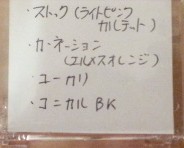 ・ストック(ライトピンク
カルテット)
・カーネーション
(エルメスオレンジ)
・ユーカリ
・コニカル BK